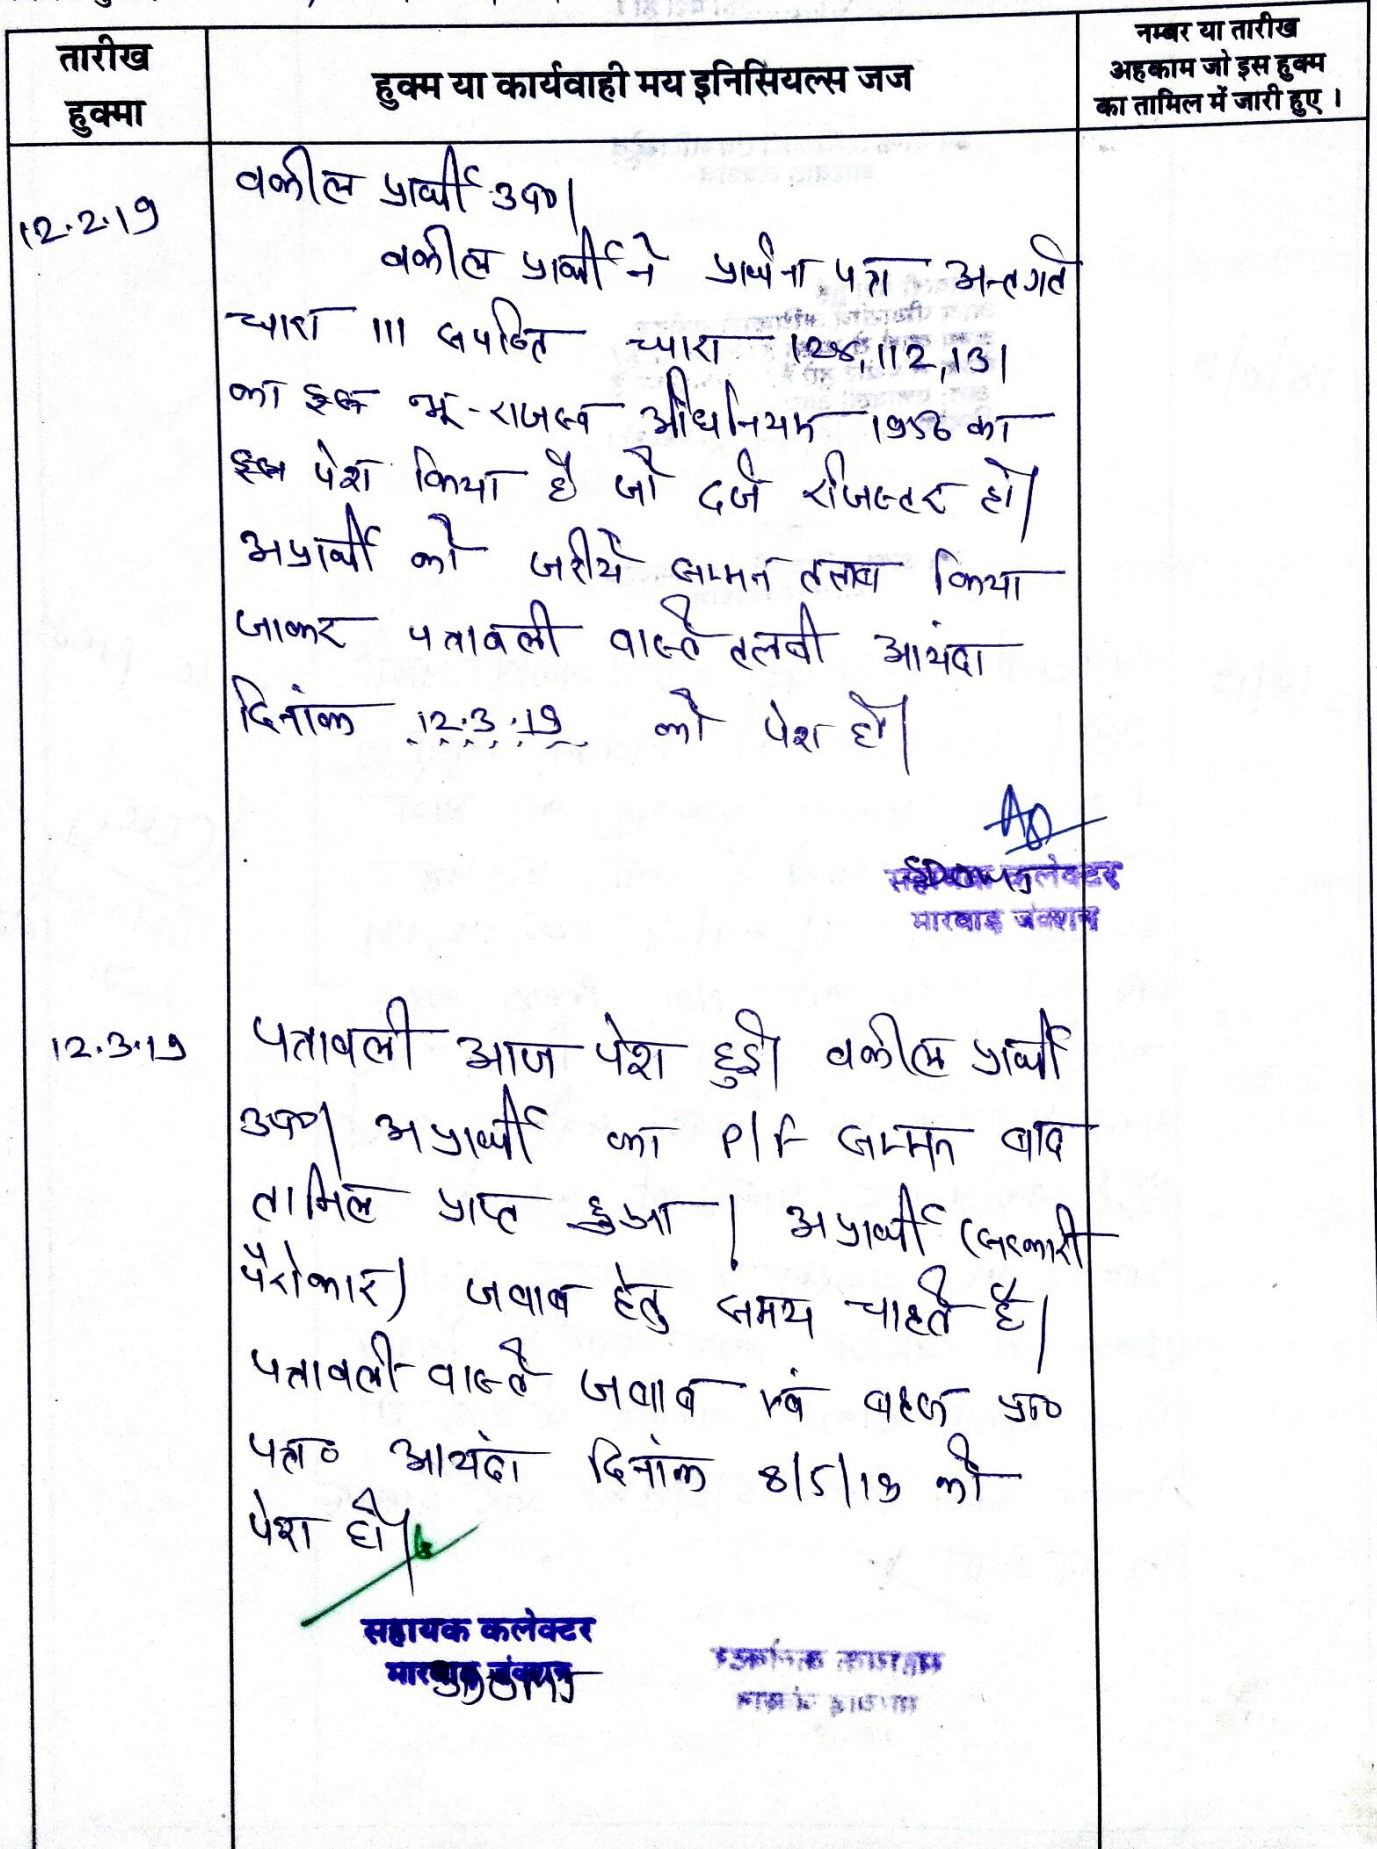 तारीख
हुक्मा
हुक्म या कार्यवाही मय इनिसियल्स जज
नम्बर या तारीख
अहकाम जो इस हुक्म
का तामिल में जारी हुए ।
12.2.19
वकील प्रार्थी उप०।
वकील प्रार्थी ने प्रार्थना पत्र अन्तर्गत
धारा 111 सपठित धारा 128, 112, 131
का भू-राजस्व अधिनियम 1956 का
पेश किया है जो दर्ज रजिस्टर हो।
अप्रार्थी को जरीये सम्मन तलब किया
जाकर पत्रावली वास्ते तलबी आयंदा
दिनांक 12.3.19 को पेश हो।
सहायक कलेक्टर
मारवाड़ जंक्शन
12.3.19
पत्रावली आज पेश हुई। वकील प्रार्थी
उप०। अप्रार्थी का P/F सम्मन बाद
तामिल प्राप्त हुआ। अप्रार्थी (सरकारी
पैरोकार) जवाब हेतु समय चाहते है।
पत्रावली वास्ते जवाब एवं बहस प्रा०
पत्र० आयंदा दिनांक 8/5/19 को
पेश हो।
सहायक कलेक्टर
मारवाड़ जंक्शन